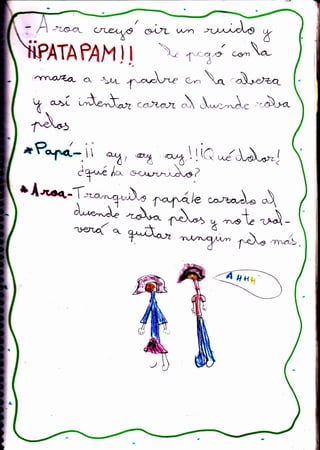 - Aroa creyó oir un ruido y
¡¡PATAPAM!! le pegó con la
maza a su padre en la cabeza
y así intentar cazar al duende roba
pelos
*Papá-¡¡ ay, ay ay!!¡Qué dolor!
¿qué ha ocurrido?
*Aroa-Tranquilo papá le cazado al
duende roba pelos y no te vol-
verá a quitar ningún pelo más.
AHHH